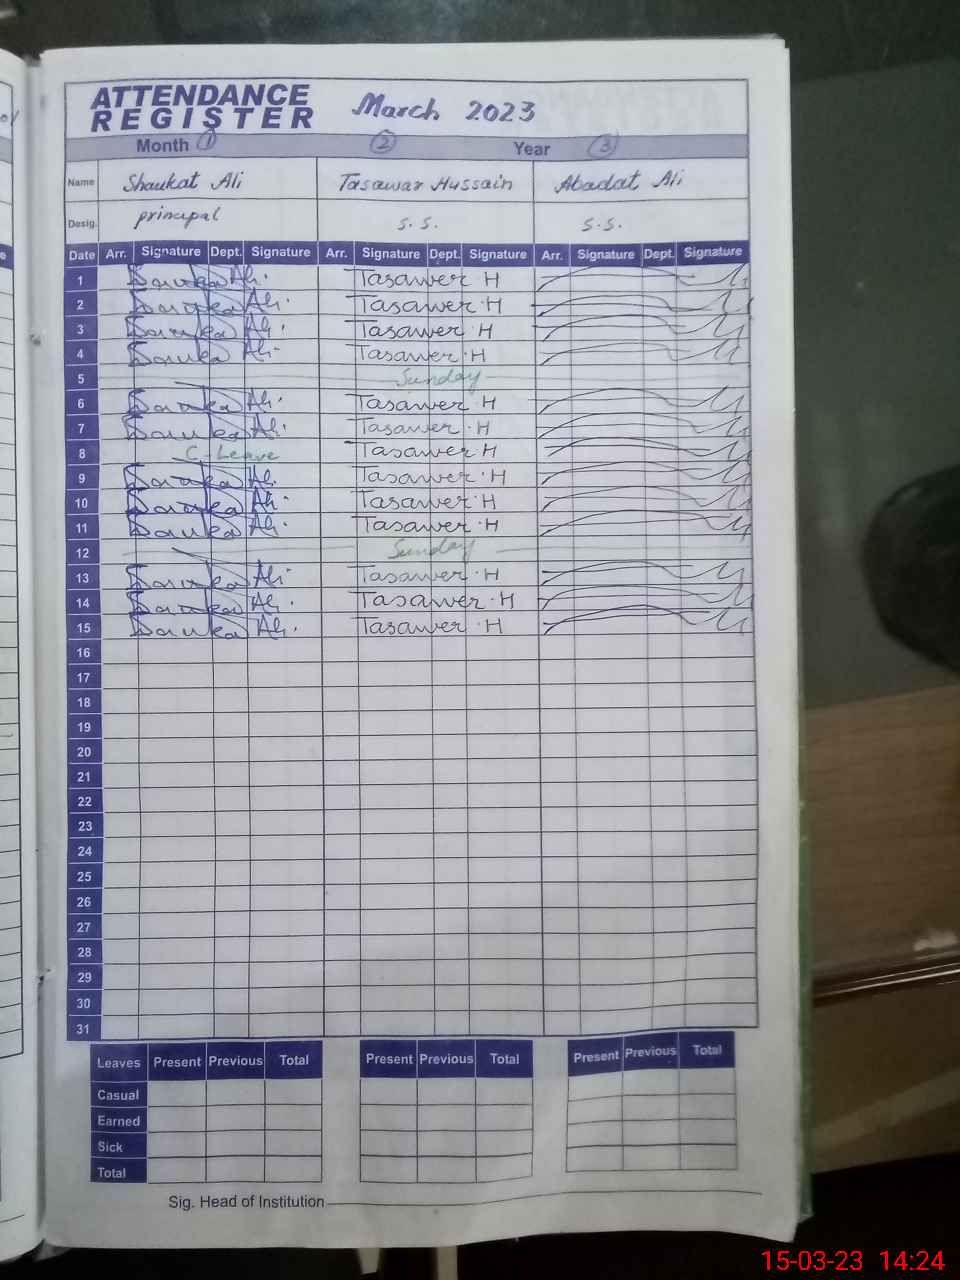 ATTENDANCE
REGISTER
March 2023
Month ① ② Year ③
Name Shaukat Ali Tasawar Hussain Abadat Ali
Desig. principal S.S. S.S.
Date Arr. Signature Dept. Signature Arr. Signature Dept. Signature Arr. Signature Dept. Signature
1 Ali. Tasawer H
2 Ali. Tasawer.H
3 Ali. Tasawer.H
4 Ali. Tasawer.H
5 Sunday
6 Ali. Tasawer.H
7 Ali. Tasawer.H
8 C-Leave Tasawer.H
9 Ali. Tasawer.H
10 Ali. Tasawer.H
11 Ali. Tasawer.H
12 Sunday
13 Ali Tasawer.H
14 Ali. Tasawer.H
15 Ali. Tasawer.H
16
17
18
19
20
21
22
23
24
25
26
27
28
29
30
31
Leaves Present Previous Total Present Previous Total Present Previous Total
Casual
Earned
Sick
Total
Sig. Head of Institution
15-03-23 14:24